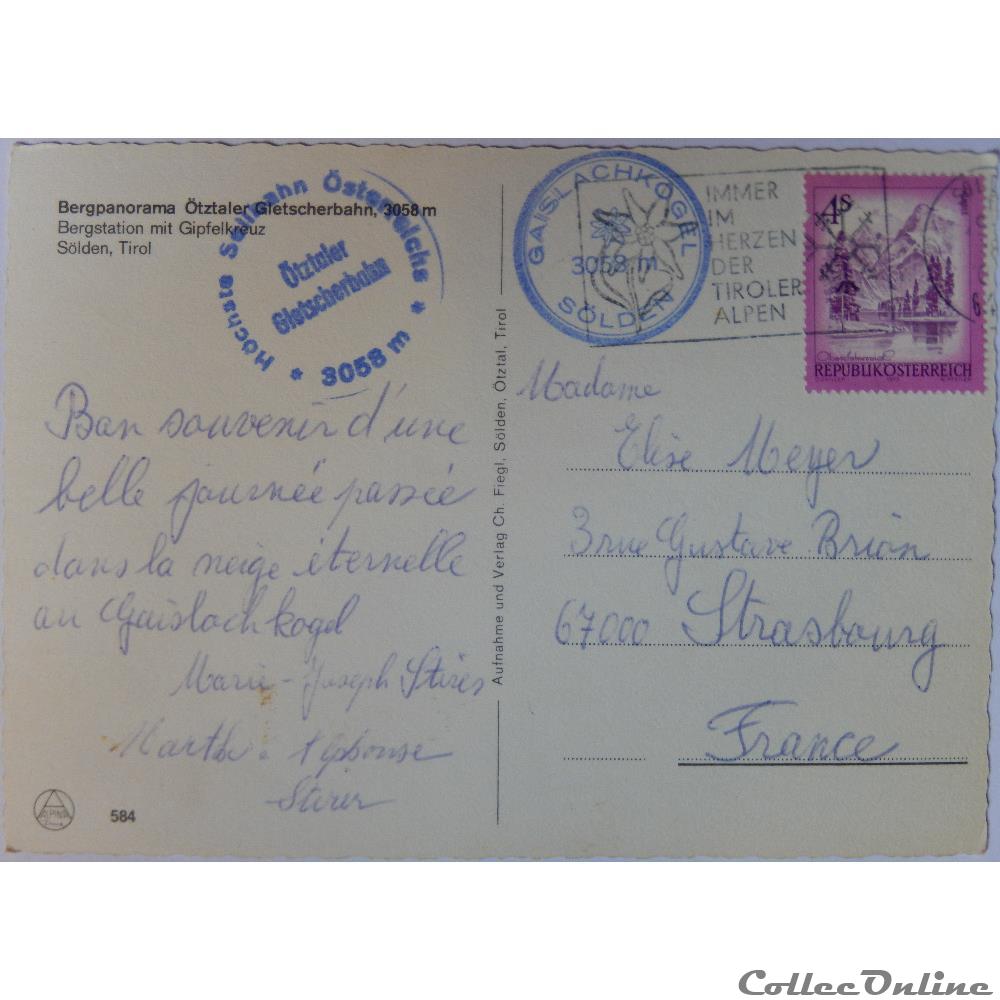 Bergpanorama Ötztaler Gletscherbahn, 3058 m
Bergstation mit Gipfelkreuz
Sölden, Tirol
Höchste Seilbahn Österreichs
Ötztaler
Gletscherbahn
* 3058 m *
Bon souvenir d'une
belle journée passée
dans la neige éternelle
au Gaislachkogel
Marie-Joseph
Marthe Alphonse
Stirer
ALPINA
584
Aufnahme und Verlag Ch. Fiegl, Sölden, Ötztal, Tirol
GAISLACHKOGEL
3058 m
SÖLDEN
IMMER
IM
HERZEN
DER
TIROLER
ALPEN
4S
Oberösterreich
REPUBLIK ÖSTERREICH
1973
Madame
Elise Meyer
3 rue Gustave Brion
67000 Strasbourg
France
CollecOnline